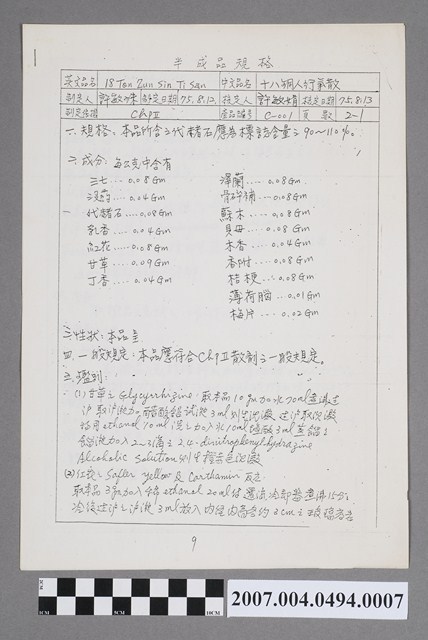 半成品規格
英文品名 18 Ten Zun Sin Ti San 中文品名 十八銅人行氣散
制定人 許敏 制定日期 75.8.12. 核定人 許敏 核定日期 75.8.13
制定依據 ChP II 產品編號 C-001 頁數 2-1
一、規格:本品所含之代赭石應為標誌含量之90~110%。
二、成分:每公克中含有
三七....0.08 Gm
沒藥....0.04 Gm
代赭石....0.08 Gm
乳香....0.04 Gm
紅花....0.08 Gm
甘草....0.09 Gm
丁香....0.04 Gm
澤蘭....0.08 Gm
骨碎補....0.08 Gm
蘇木....0.08 Gm
貝母....0.08 Gm
木香....0.04 Gm
香附....0.08 Gm
桔梗....0.08 Gm
薄荷腦....0.01 Gm
梅片....0.02 Gm
三、性狀:本品呈
四、一般規定:本品應符合ChP II 散劑之一般規定。
五、鑑別:
(1)甘草之Glycyrrhizine:取本品10g加水70ml煮沸過
濾取濾液加醋酸鉛試液3ml則生沉澱,過濾取沉澱
ethanol 70ml 加入水10ml 3ml
加入2~3滴之2.4-dinitrophenylhydrazine
Alcoholic Solution則生橙黃色沉澱
(2)紅花之Safler yellow & Carthamin 反應
取本品3g加入稀ethanol 20ml付還流冷却器煮沸15分
冷後過濾之濾液3ml放入内徑 3cm之玻璃
9
2007.004.0494.0007